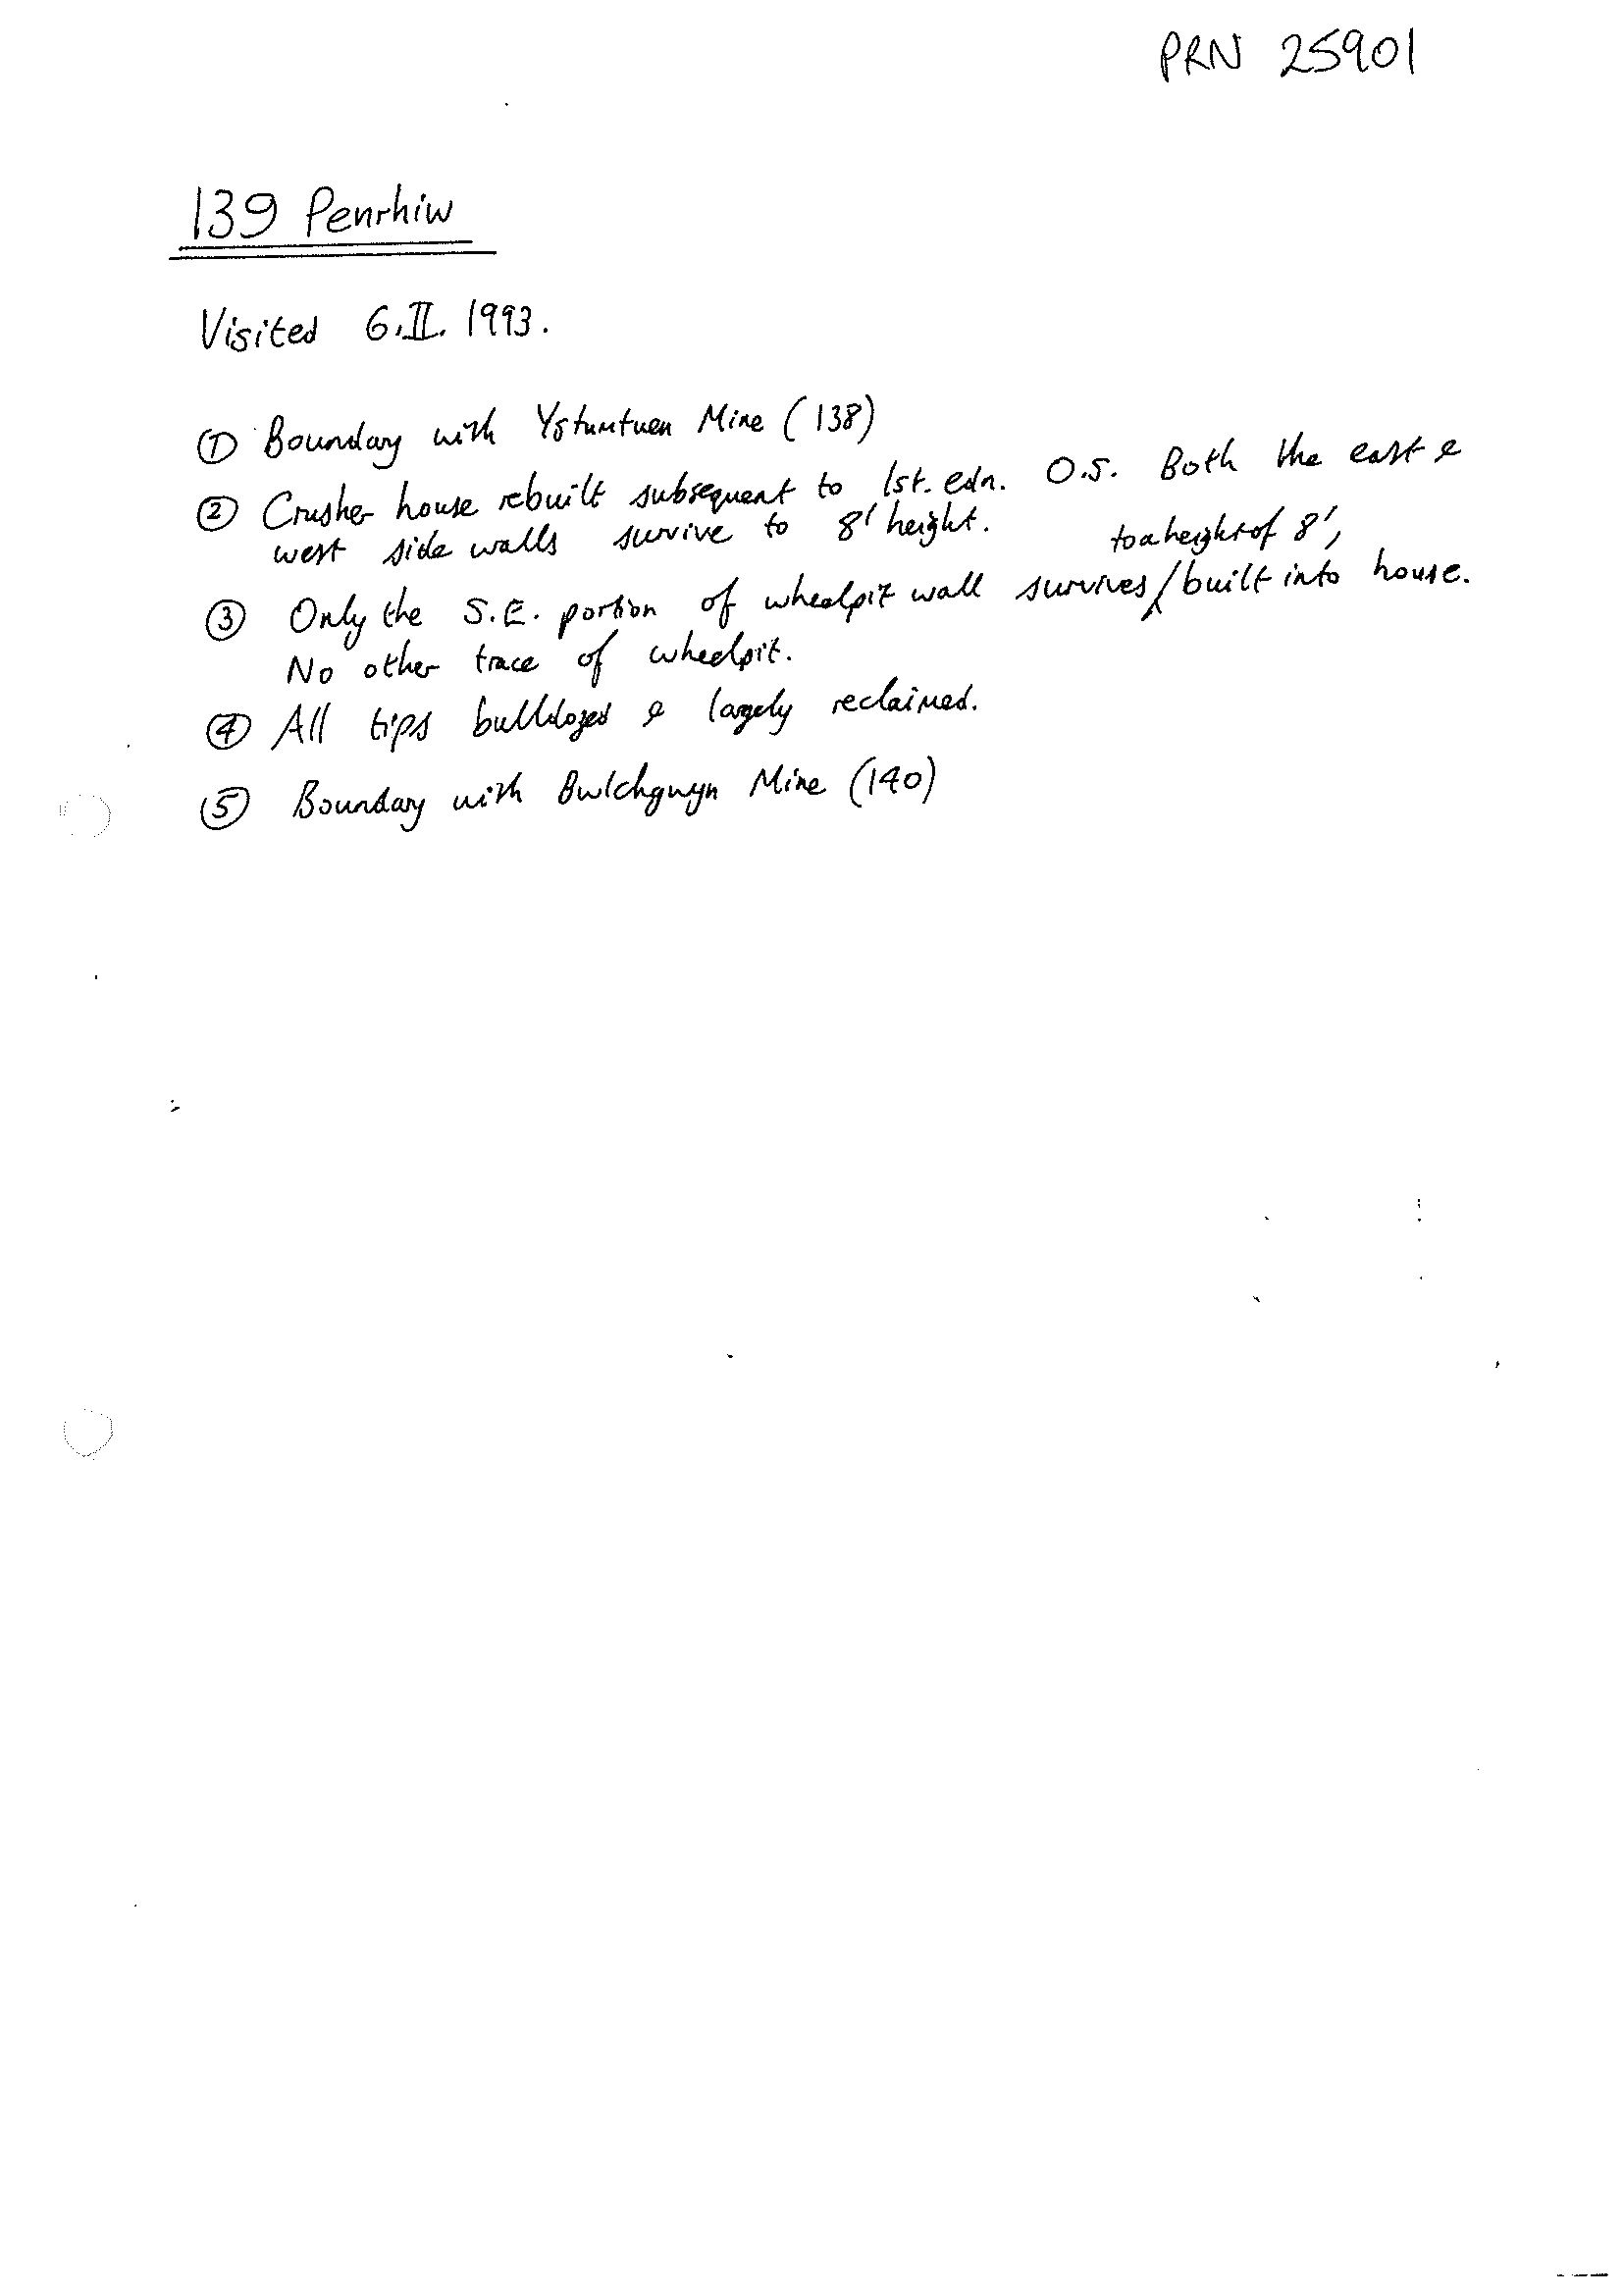 PRN 25901
139 Penrhiw
Visited 6.II.1993.
① Boundary with Ystumtuen Mine (138)
② Crusher house rebuilt subsequent to 1st. edn. O.S. Both the east &
west side walls survive to 8' height.
to a height of 8',
③ Only the S.E. portion of wheelpit wall survives / built into house.
No other trace of wheelpit.
④ All tips bulldozed & largely reclaimed.
⑤ Boundary with Bwlchgwyn Mine (140)